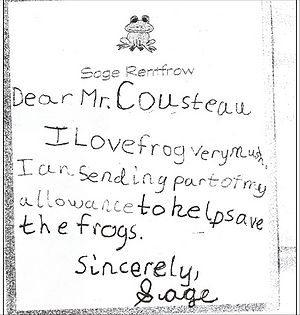 Sage Rentfrow
Dear Mr. Cousteau
I Love frog very much.
I am sending part of my
allowance to help save
the frogs.
Sincerely,
Sage